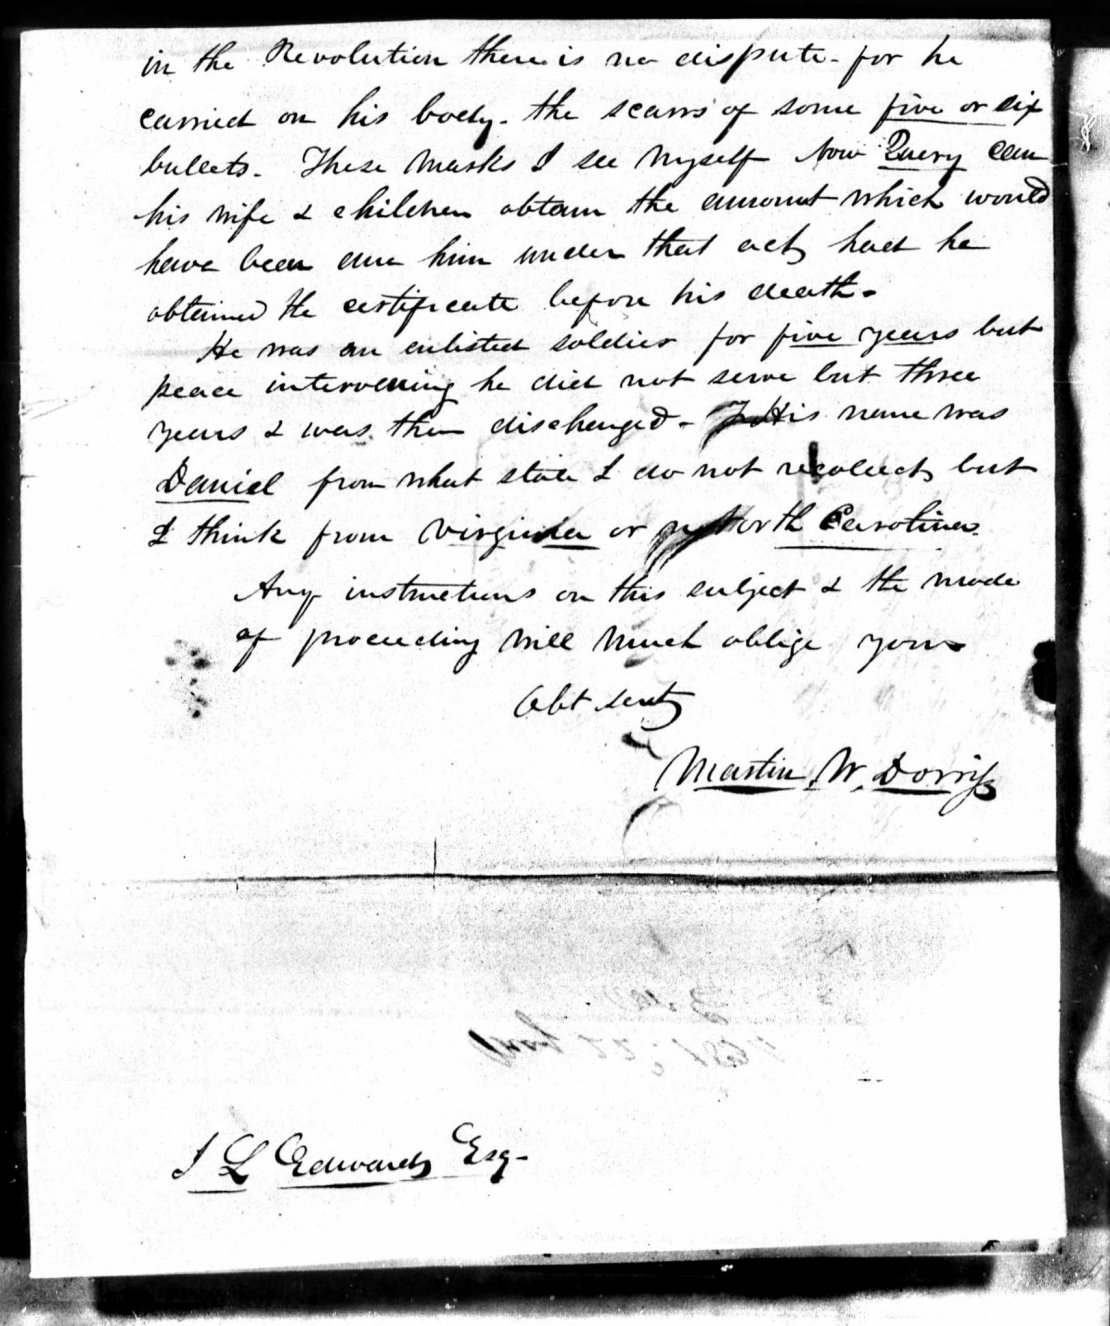 in the Revolution there is no dispute - for he
carried on his body - the scarrs of some five or six
bullets - These marks I see myself Now Query can
his wife & children obtain the amount which would
have been due him under that act, had he
obtained the certificate before his death -
He was an enlisted soldier for five years but
peace intervening he did not serve but three
years & was then discharged - His name was
Daniel from what state I do not recolect, but
I think from Virginia or North Carolina.
Any instructions on this subject & the mode
of proceeding will much oblige your
Obt servt
Martin W. Dorris
J L Edwards Esq -